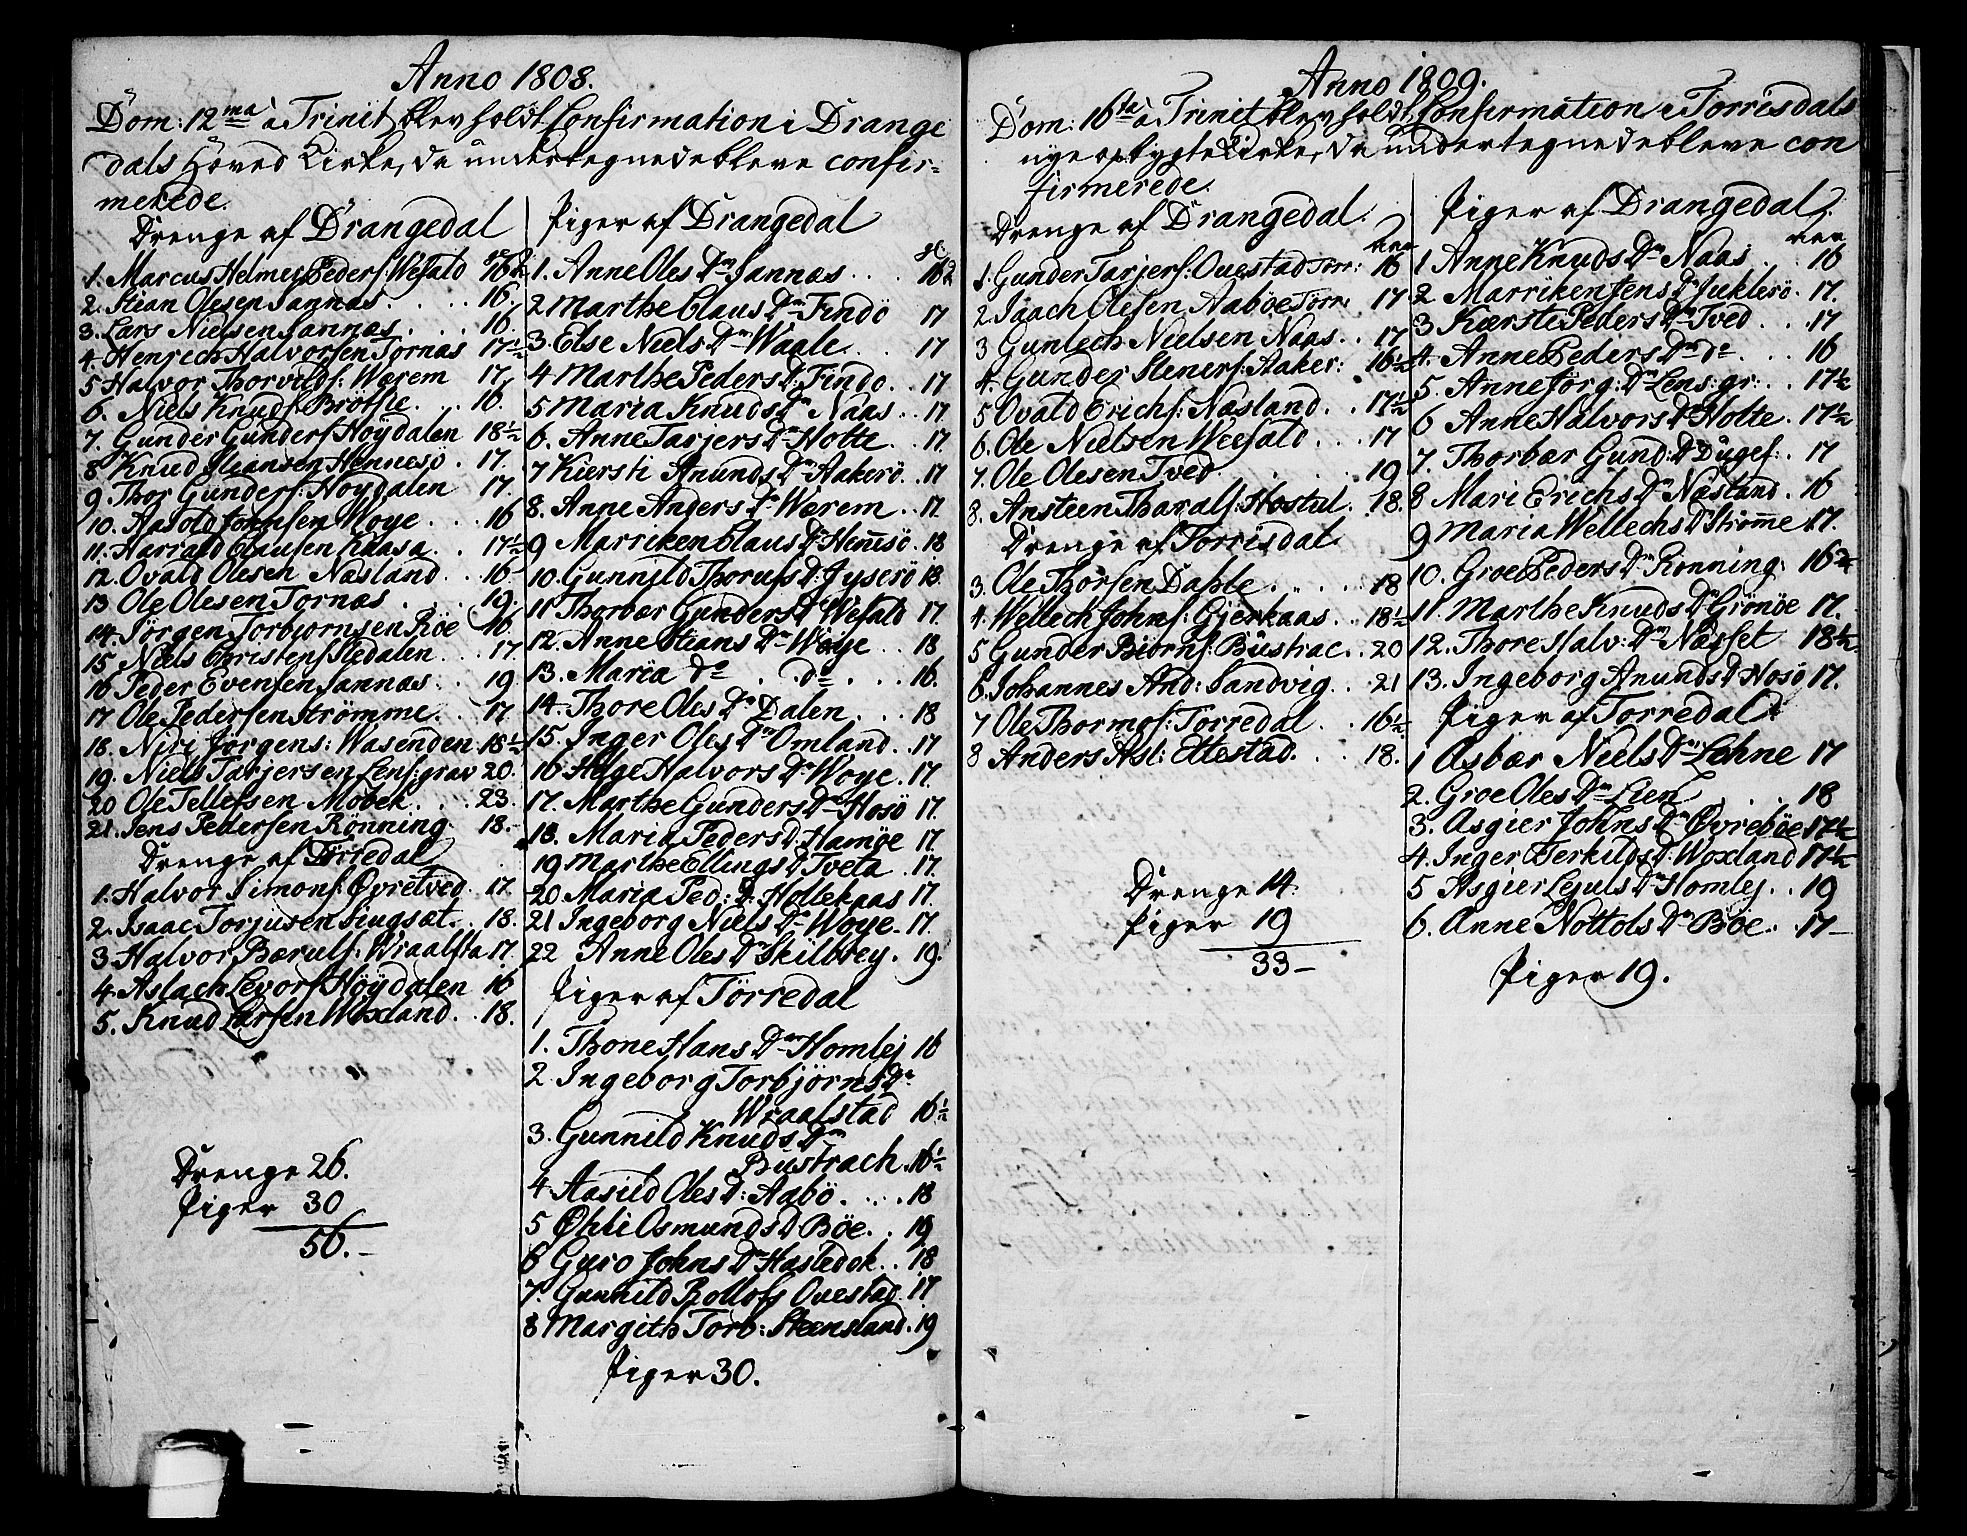 Anno 1808.
Dom: 12ma à Trinit, blev holdt Confirmation i Drange
dals Hoved Kirke, da undertegnede bleve confir-
merede.
Drenge af Drangedal
1. Marcus Helmer Peders: Wefald 16½
2. Stian Olesen Sannæs. 16.
3. Lars Nielsen Sannæs. 16.
4. Henrich Halvorsen Tornæs 17½
5 Halvor Thorvilds: Wærem 17.
6. Niels Knuds: 16.
7. Gunder Gunders Höydalen 18½
8 Knud Stiansen Hennesö. 17.
9 Thor Gunders: Höydalen 17.
10. Aasold Johnsen Woye. 16
11. Harrald Clausen Kaasa. 17½
12. Ovald Olesen Næsland. 16.
13 Ole Olesen Tornæs 19.
14. Jörgen Torbjornsen Röe 16.
15 Niels Christens Sledalen. 17.
16 Peder Evensen Sannæs. 19
17 Ole Pedersen Strömme. 17
18. Niri Jörgens: Wasenden 18½
19. Niels Tarjersen Lens:grav 20.
20 Ole Tellefsen Mobek. 23.
21. Jens Pedersen Rönning 18.
Drenge af Törredal
1. Halvor Simons: Øvretved. 17.
2. Isaac Torjusen Liugsæt. 18.
3 Halvor Bæruls: Wraalsta 17.
4. Aslach Levors Höydalen 16
5. Knud Larsen Woxland. 18.
Drenge 26.
Piger 30
56.
Piger af Drangedal
1. Anne Oles Dr Sannæs 16½
2 Marthe Claus Dr Findö 17
3. Else Niels Dr Waale. 17
4 Marthe Peders D: Findö. 17
5 Maria Knuds Dr Naas. 17
6. Anne Tarjers Dr Holte. 17.
7 Kiersti Anunds Dr Aakerö. 17
8. Anne Anders Dr Wærem. 17
9 Marriken Claus Dr Hennesö. 18
10. Gunnild Thorufs D: Jyserö 18.
11 Thorbær Gunders Dr Wefald 17.
12. Anne Stians Dr Woye. 18
13. Maria do. do. 16.
14. Thore Oles Dr Dalen. 18
15. Inger Oles Dr Omland. 17
16 Helge Halvors Dr Woye. 17.
17. Marthe Gunders Dr Hosö 17.
18. Maria Peders D: Hamöe 17.
19 Marthe Ellings D: Tveta. 17.
20 Maria Ped: D: Hollekaas 17.
21 Ingeborg Niels Dr Woye. 17.
22 Anne Oles Dr Skilbrey. 19.
Piger af Törredal
1. Thone Hans Dr Homlej 16
2. Ingeborg Torbjörns Dr
Wraalstad 16½
3. Gunnild Knuds Dr
Bustrach. 16½
4 Aasild Oles D: Aabö. 18
5 Osmunds D Böe. 19
6 Guro Johns Dr Hasledok. 18
7. Gunnild Rollofs Ouestad. 17
8 Margith Torb: Steensland. 19
Piger 30.
Anno 1809.
Dom: 16ta à Trinit blev holdt Confirmation i Torrisdals
nye opbygte Kirke, da undertegnede bleve con
firmerede.
Drenge af Drangedal.
Aar
1. Gunder Tarjers: Ouestad Törr: 16
2. Isach Olesen Aaböe Törr: 17
3 Gunlech Nielsen Naas. 17
4. Gunder Steners: Aaker: 16½
5 Ovald Erichs: Næsland. 17½
6. Ole Nielsen Weefald. 17
7. Ole Olesen Tved. 19
8. Ansteen Tharals: Hostul. 18.
Drenge af Torrisdal
3. Ole Thorsen Dahle. 18
4. Wellech Johns: Gjerkaas. 18½
5 Gunder Biorns: Bustrac. 20
6. Johannes And: Sandvig. 21
7 Ole Thormos: Törredal. 16½
8 Anders Asl: Ettestad. 18.
Drenge 14.
Piger 19
33
Piger af Drangedal.
Aar
1 Anne Knuds Dr Naas. 16
2 Marriken Jens Dr Juklesö. 17.
3 Kierste Peders Dr Tved. 17
4. Anne Peders Dr do. 16
5. Anne Jörg: Dr Lens:gr: 17½
6 Anne Halvors Dr Holte. 17½
7. Thorbær Gund: D: 17
8 Mari Erichs Dr Næsland. 16
9 Maria Wellechs Dr Strömme 17.
10. Groe Peders Dr Rönning. 16½
11 Marthe Knuds Dr Grönöe 17.
12. Thore Halv: Dr Næsset 18½
13. Ingeborg Anunds D Hosö 17.
Piger af Torredal
1 Asbær Niels Dr Lehne 17
2. Groe Oles Dr Lien 18
3. Asgier Johns Dr Øvreböe 17½
4. Inger Terkilds D: Woxland 17½
5 Asgier Lejuls Dr Homlej. 19
6. Anne Nottols Dr Böe. 17
Piger 19.